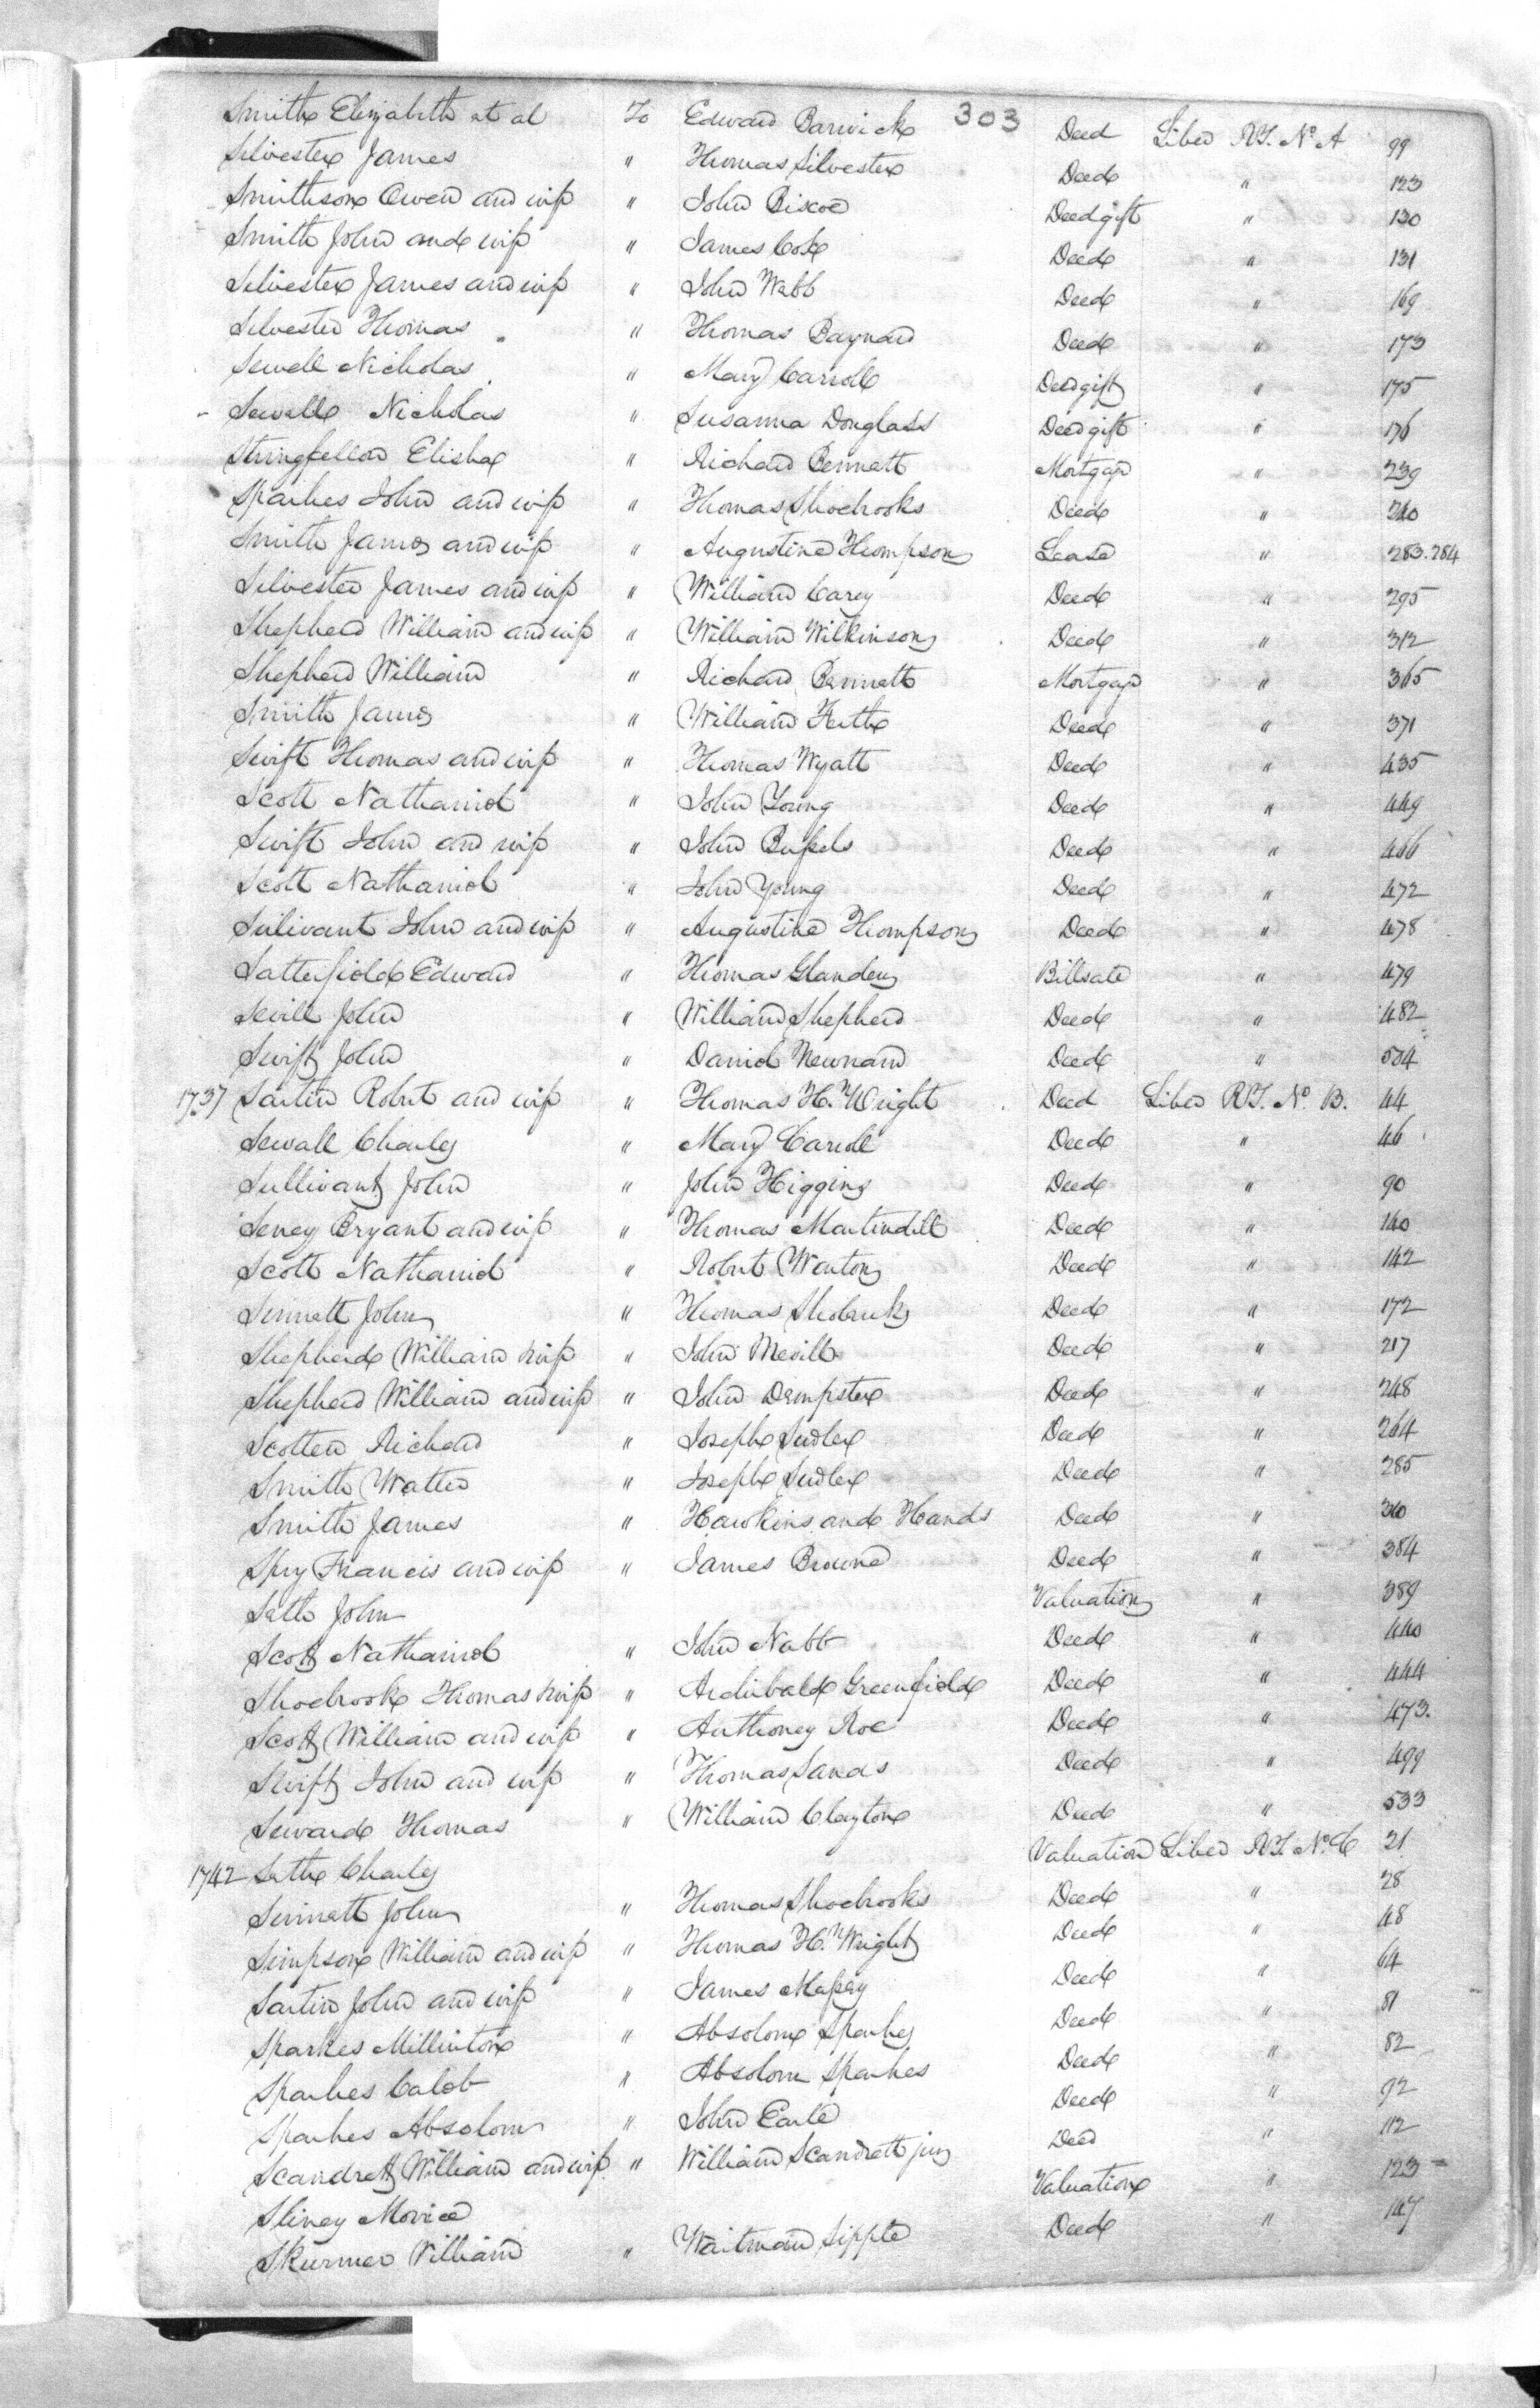 303
Smith Elizabeth et al To Edward Barwick Deed Liber RT. No A 99
Silvester James " Thomas Silvester Deed " 123
Smithson Owen and wife " John Biscoe Deed gift " 130
Smith John and wife " James Cole Deed " 131
Silvester James and wife " John Webb Deed " 169
Silvester Thomas " Thomas Baynard Deed " 173
Sewell Nicholas " Mary Carroll Deed gift " 175
Sewall Nicholas " Susanna Douglass Deed gift " 176
Stringfellow Elisha " Richard Bennett Mortgage " 239
Sparkes John and wife " Thomas Shoebrooks Deed " 240
Smith James and wife " Augustine Thompson Lease " 283.284
Silvester James and wife " William Carey Deed " 295
Shepherd William and wife " William Wilkinson Deed " 312
Shepherd William " Richard Bennett Mortgage " 365
Smith James " William Deed " 371
Swift Thomas and wife " Thomas Wyatt Deed " 435
Scott Nathaniel " John Young Deed " 449
Swift John and wife " John Deed " 466
Scott Nathaniel " John Young Deed " 472
Sulivant John and wife " Augustine Thompson Deed " 478
Satterfield Edward " Thomas Glanden Billsale " 479
Sevill John " William Shepherd Deed " 482
Swift John " Daniel Newnam Deed " 504
1737 Sartin Robert and wife " Thomas H. Wright Deed Liber RT. No. B. 44
Sewall Charles " Mary Carroll Deed " 46
Sullivant John " John Higgins Deed " 90
Seney Bryant and wife " Thomas Martindill Deed " 140
Scott Nathaniel " Robert Wenton Deed " 142
Sinnett John " Thomas Shobruks Deed " 172
Shepherd William & wife " John Mevill Deed " 217
Shepherd William and wife " John Dempster Deed " 248
Scotten Richard " Joseph Sudler Deed " 264
Smith Walter " Joseph Sudler Deed " 285
Smith James " Hawkins and Hands Deed " 340
Spry Francis and wife " James Browne Deed " 384
Seth John Valuation " 389
Scott Nathaniel " John Nabb Deed " 440
Shoebrook Thomas & wife " Archibald Greenfield Deed " 444
Scott William and wife " Anthoney Roe Deed " 473.
Swift John and wife " Thomas Sands Deed " 499
Seward Thomas " William Clayton Deed " 533
1742 Seth Charles Valuation Liber RT No. C 21
Sinnett John " Thomas Shoebrooks Deed " 28
Simpson William and wife " Thomas H. Wright Deed " 48
Sartin John and wife " James Massey Deed " 64
Sparkes Millinton " Absolom Sparkes Deed " 81
Sparkes Caleb " Absolom Sparkes Deed " 82
Sparkes Absolom " John Earle Deed " 92
Scandrett William and wife " William Scandrett jun Deed " 112
Sliney Morice Valuation " 123
Skurmer William " Waitman Sipple Deed " 147